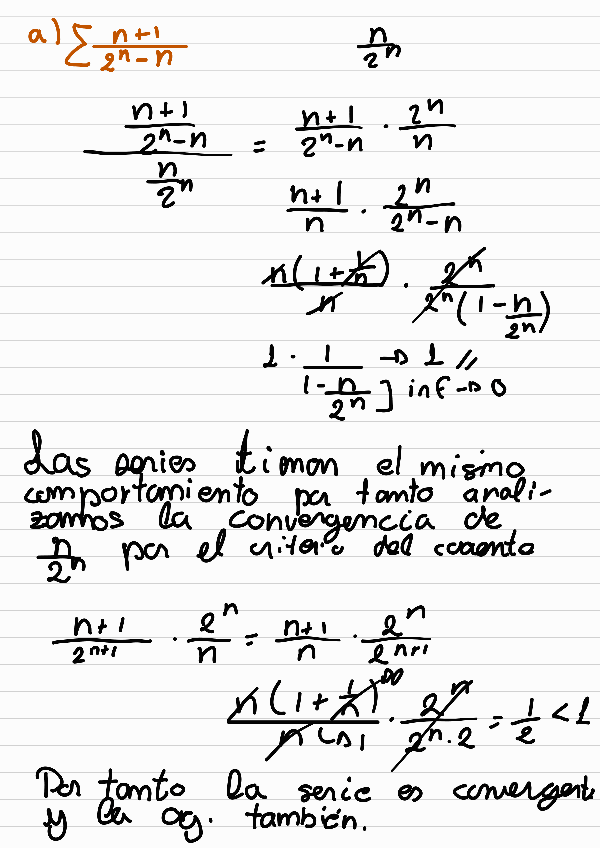 a) ∑ (n+1)/(2^n - n)    n/2^n
((n+1)/(2^n - n)) / (n/2^n) = (n+1)/(2^n - n) · 2^n/n
(n+1)/n · 2^n/(2^n - n)
n(1 + 1/n)/n · 2^n/(2^n(1 - n/2^n))
1 · 1/(1 - n/2^n) → 1 // ] inf → 0
Las series tienen el mismo
comportamiento por tanto anali-
zamos la convergencia de
n/2^n por el criterio del cociente
(n+1)/2^(n+1) · 2^n/n = (n+1)/n · 2^n/2^(n+1)
n(1 + 1/n)^∞/n ↳ 1 · 2^n/(2^n · 2) = 1/2 < 1
Por tanto la serie es convergente
y la og. también.